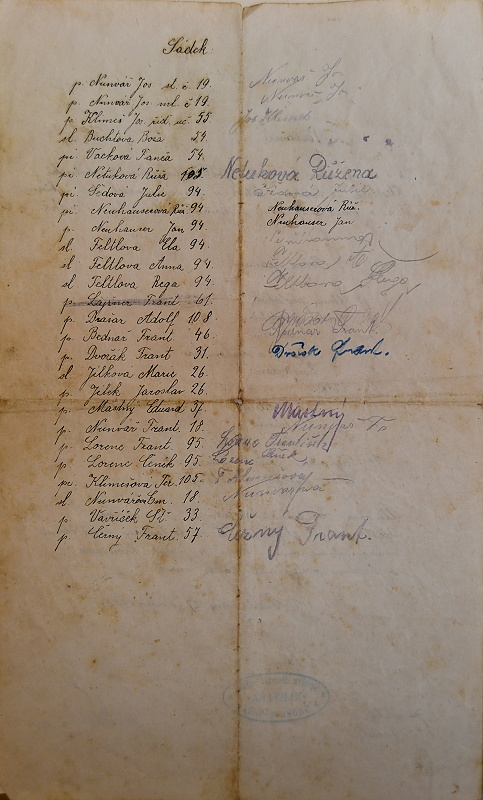 Sádek:
p. Nunvář Jos. st. č. 19. Nunvář Jo
p. Nunvář Jos. ml. č 19. Nunvář Jo
p. Klimeš Jos. říd. uč. 55 Jos Klimeš
sl. Buchtova Boža 54.
pí. Vacková Fanča 54.
pí Netuková Růža 105 Netuková Růžena
pí. Šédová Julie 94. Julie
pí. Neuhauserová Růž. 94. Neuhauserová Růž.
p. Neuhauser Jan 94. Neuhauser Jan
sl. Feltlova Ela 94.
sl. Feltlova Anna 94.
sl. Feltlova Rega 94.
p. Lajsner Frant 61.
p. Drašar Adolf 108
p. Bednar Frant. 46. Bednar Frant.
p. Dvořák Frant 31. Dvořák Frant.
sl. Jílkova Marie 26.
p. Jílek Jaroslav 26.
p. Mastný Eduard 37. Mastný
p. Nunvář Frant. 18. Nunvář Fr
p. Lorenc Frant. 95. Lorenc František
p. Lorenc Čeněk 95. Lorenc Čeněk
pí. Klimešova Ter. 105. Klimešova
sl. Nunvářova Em. 18 Nunvářová
p. Vavříček St. 33.
p. Černý Frant. 57. Černý Frant.